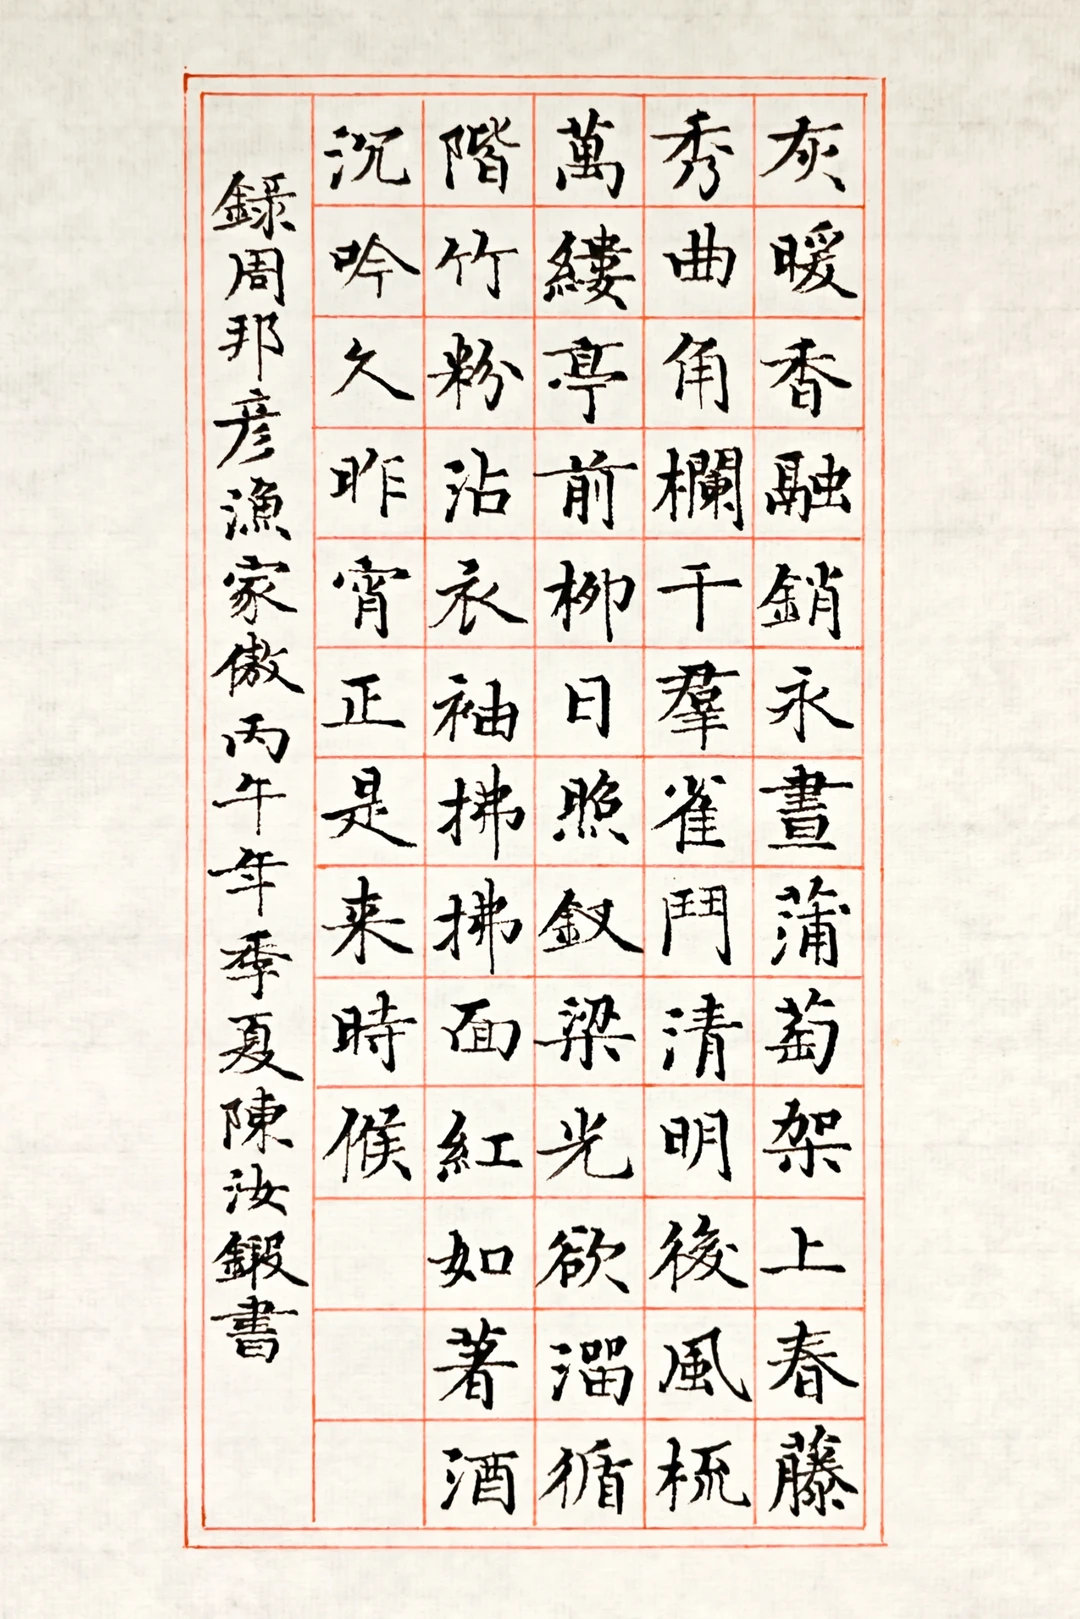 灰暖香融銷永晝蒲萄架上春藤
秀曲角欄干羣雀鬥清明後風梳
萬縷亭前柳日照釵梁光欲溜循
階竹粉沾衣袖拂拂面紅如著酒
沉吟久昨宵正是来時候
錄周邦彦漁家傲丙午年季夏陳汝鍛書